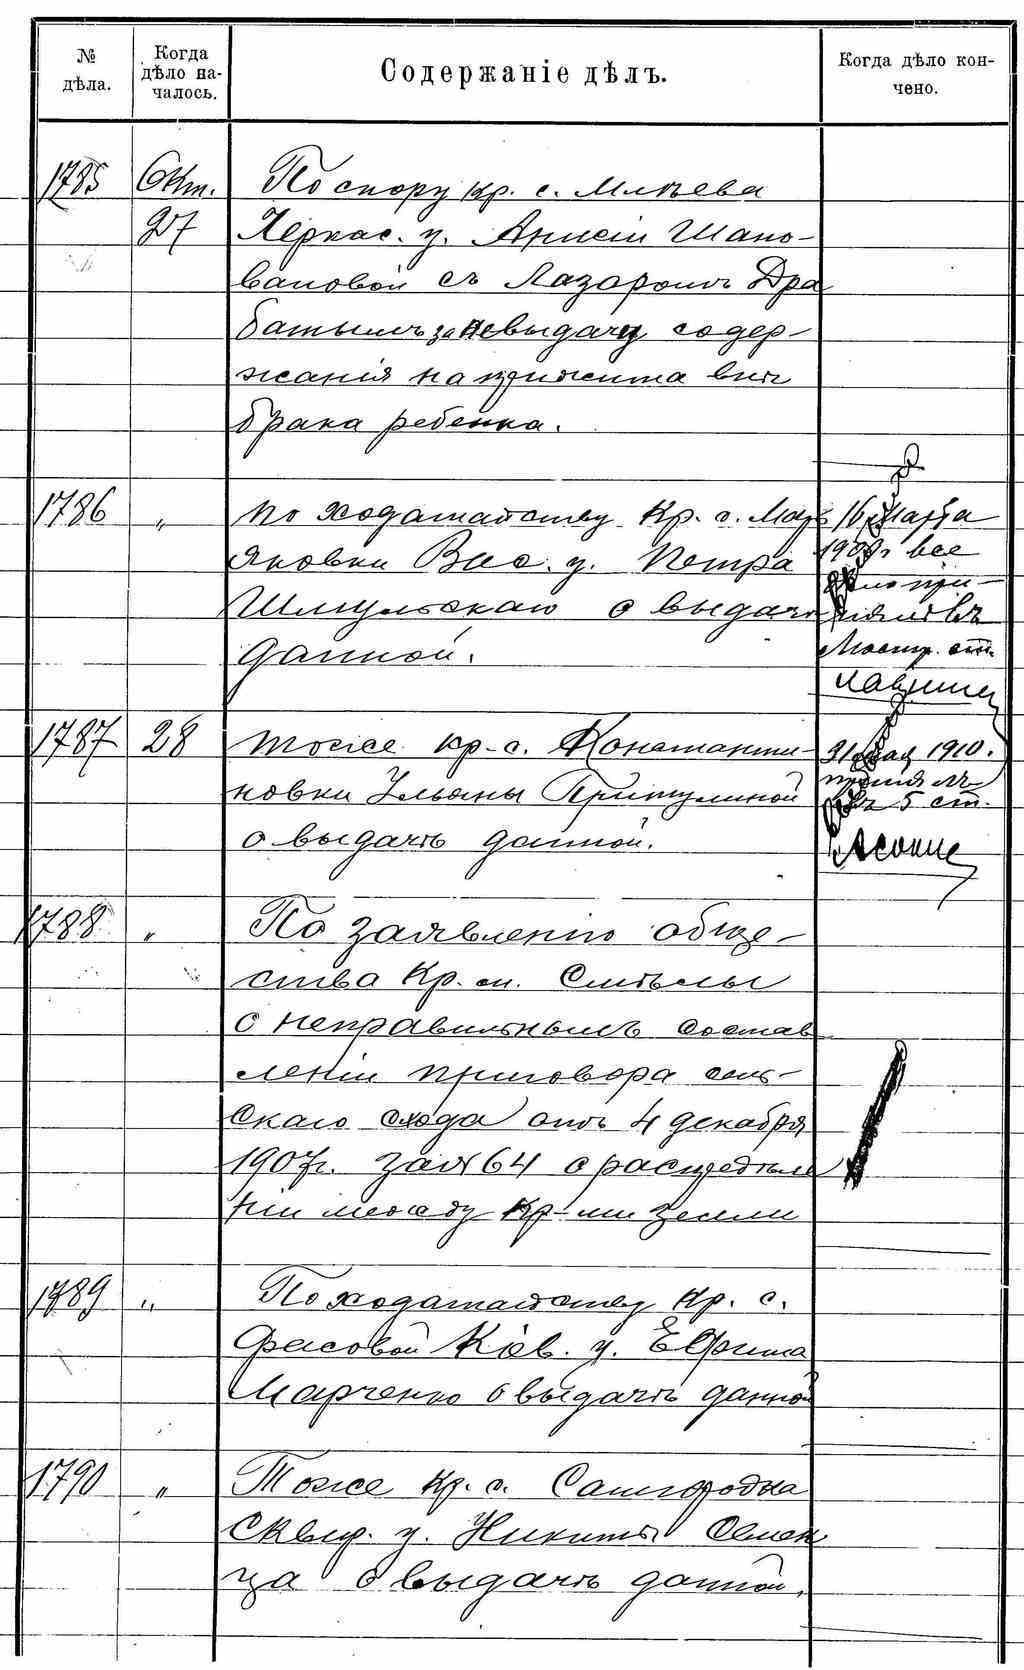 № дѣла.
Когда дѣло на-
чалось.
Содержаніе дѣлъ.
Когда дѣло кон-
чено.
1785 Окт. По спору кр. с. Млѣева
27 Черкас. у. Анисіи Шапо-
валовой съ Лазаромъ Дра
батымъ за невыдачу содер-
жанія на прижита внѣ
брака ребенка.
1786 „ по ходатайству Кр. с. Марь
яновки Вас. у. Петра
Шмульскаго о выдачѣ
данной.
16 марта
1909 г все
дѣло при-
нялъ въ
1787 28 тоже кр-с. Константи-
новки Ульяны Притулиной
о выдачѣ данной.
31 мая 1910.
принялъ
въ 5 ст.
1788 „ По заявленію обще-
ства Кр. м. Смѣлы
о неправильномъ состав
леніи приговора сель-
скаго схода отъ 4 декабря
1907 г. за № 64 о распредѣле
ніи между кр-ми земли
1789 „ По ходатайству кр. с.
Фасовой Кіев. у. Ефима
Марченко о выдачѣ данной
1790 „ Тоже кр. с. Самгородка
Сквир. у. Никиты Семен
ца о выдачѣ данной.